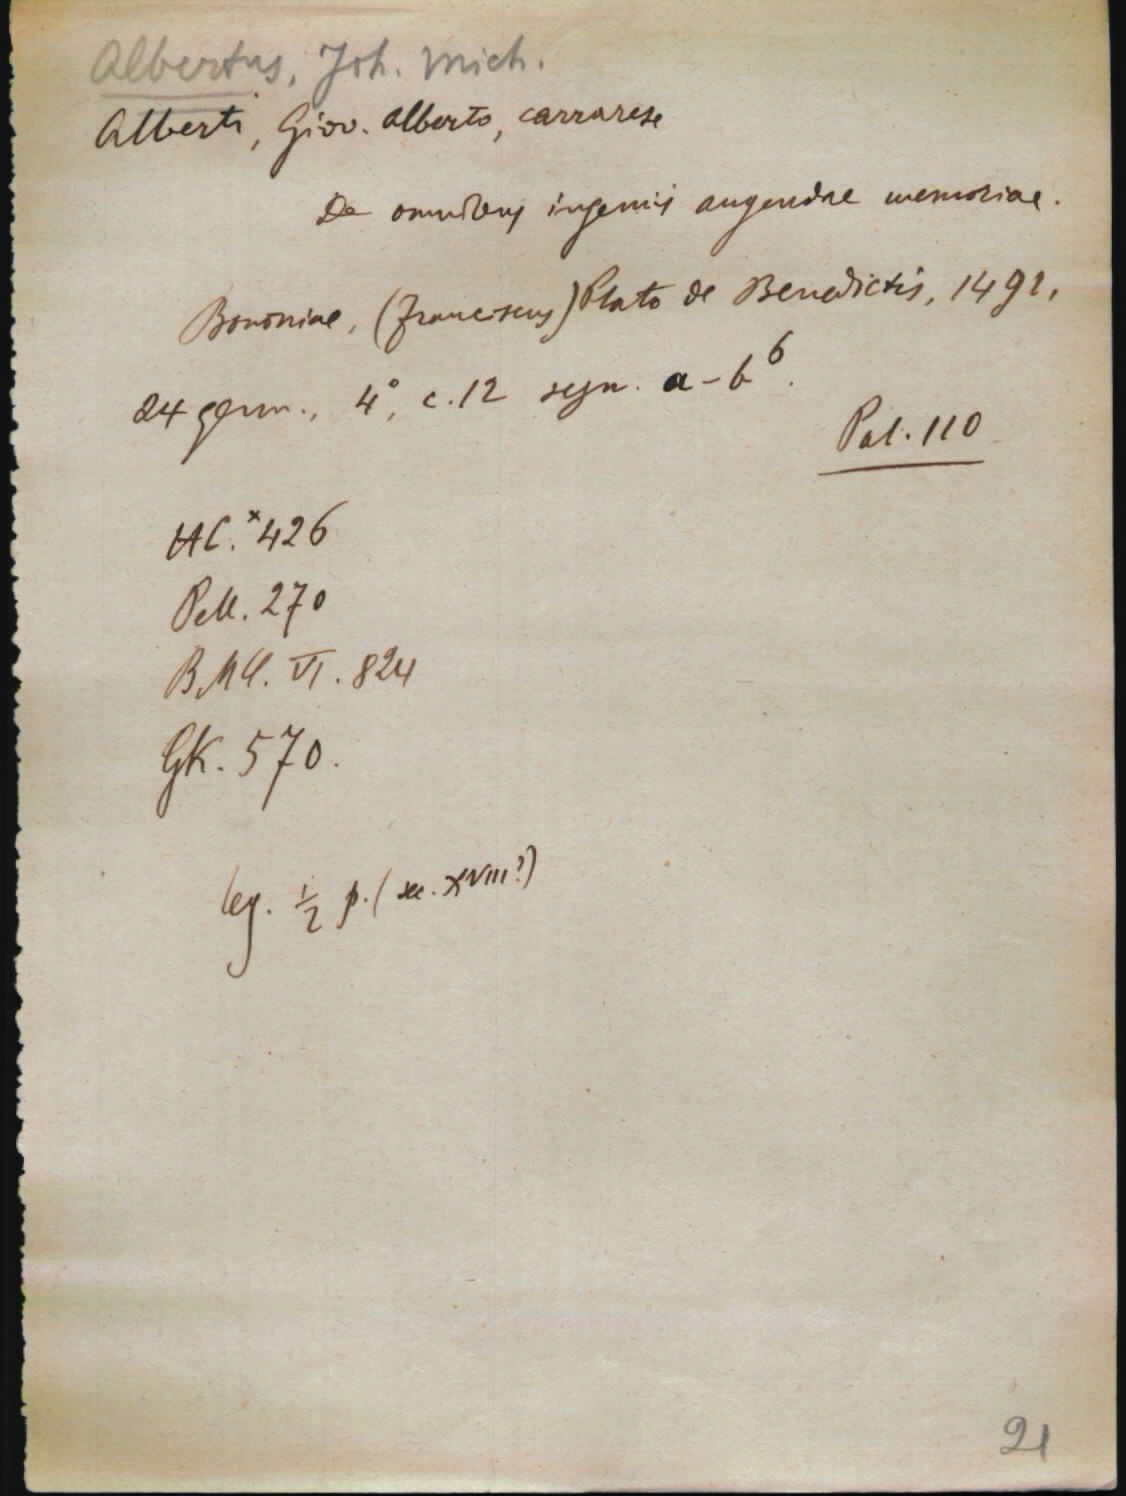 Albertus, Joh. Mich.
Alberti, Giov. Alberto, carrarese
De omnibus ingeniis augendae memoriae.
Bononiae, (Franciscus) Plato de Benedictis, 1491,
24 genn., 4°, c. 12 segn. a-b⁶.
Pal. 110
HC.*426
Pell. 270
BMC. VI. 824
GK. 570.
leg. ½ p. (sec. XVIII?)
21